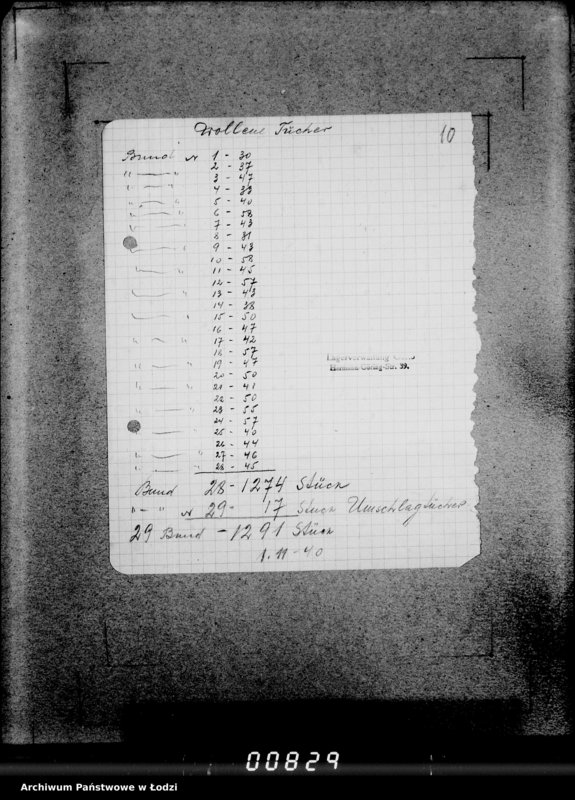 Wollene Tücher
10
Bund N 1 - 30
" " 2 - 37
" " 3 - 47
" " 4 - 33
" " 5 - 40
" " 6 - 58
7 - 43
8 - 31
" 9 - 43
10 - 58
" 11 - 45
12 - 57
" 13 - 43
14 - 38
" 15 - 50
16 - 47
" " 17 - 42
18 - 57
" " 19 - 47
20 - 50
" " 21 - 41
22 - 50
" " 23 - 55
24 - 57
" " 25 - 40
26 - 44
" " 27 - 46
" " 28 - 45
Lagerverwaltung
Hermann-Göring-Str. 39.
Bund 28 - 1274 Stück
" - " N 29 - 17 Stück Umschlagtücher
29 Bund - 1291 Stück
1. 11 - 40
00829
Archiwum Państwowe w Łodzi